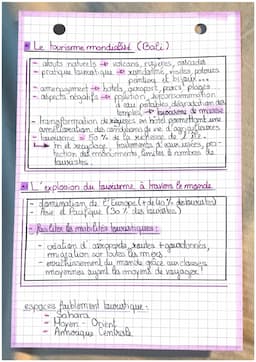 Le tourisme mondialisé (Bali)
- atouts naturels → volcans, rizières, cascades
- pratique touristique → randonnée, visites, poteries
et bijoux...
- aménagement → hôtels, aéroport, parcs, plages
- aspects négatifs → pollution, surconsommation
d'eau potable, dégradation des
temples → tourisme de masse
- transformation de rizières en hôtel permettant une
amélioration des conditions de vie d'agriculteurs
- tourisme = 50% de la richesse de l'île
- tri et recyclage, traitements d'eaux usées, pro-
tection des monuments, limites le nombre de
touristes.
L'explosion du tourisme à travers le monde
- domination de l'Europe (+ de 40% de touristes)
- Asie et Pacifique (30% des touristes)
- faciliter les mobilités touristiques :
- création d'aéroports, routes + goudronnés,
migration sur toutes les mers.
- enrichissement du monde grâce aux classes
moyennes ayant les moyens de voyager !
espaces faiblement touristique :
- Sahara
- Moyen-Orient
- Amérique Centrale